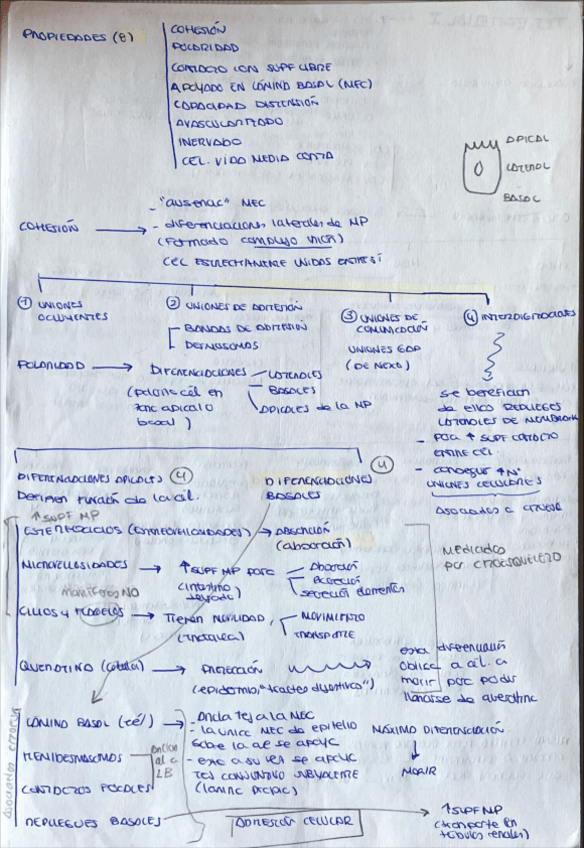 PROPIEDADES (8)
COHESIÓN
POLARIDAD
CONTACTO CON SUPF LIBRE
APOYADO EN LÁMINA BASAL (MEC)
CAPACIDAD DISTENSIÓN
AVASCULARIZADO
INERVADO
CEL. VIDA MEDIA CORTA
APICAL
LATERAL
BASAL
COHESIÓN →
- "ausencia" MEC
- diferenciaciones laterales de MP
(formando complejo unión)
CEL ESTRECHAMENTE UNIDAS ENTRE SÍ
① UNIONES OCLUYENTES
② UNIONES DE ADHESIÓN
BANDAS DE ADHESIÓN
DESMOSOMAS
③ UNIONES DE COMUNICACIÓN
UNIONES GAP
(DE NEXO)
④ INTERDIGITACIONES
se benefician
de ellas REPLIEGES
LATERALES DE MEMBRANA
- PARA ↑ SUPF CONTACTO
ENTRE CEL
- conseguir ↑ Nº
UNIONES CELULARES
POLARIDAD → DIFERENCIACIONES
LATERALES
BASALES
APICALES de la MP
(polariza cél en
zona apical o
basal)
DIFERENCIACIONES APICALES ④
Definen función de la cél.
↑ SUPF MP
ESTEREOCILIOS (ESTEREOVELLOSIDADES) → ABSORCIÓN
(absorción)
MICROVELLOSIDADES → ↑ SUPF MP para
Absorción
Excreción
secreción
(intestino delgado)
mamíferos NO
CILIOS y FLAGELOS → TIENEN MOVILIDAD,
MOVIMIENTO
TRANSPORTE
(tráquea)
QUERATINA (célula) → PROTECCIÓN
(epidermis, "tracto digestivo")
DIFERENCIACIONES BASALES ④
MEDIADOS
POR CITOESQUELETO
esta diferenciación
obliga a cél. a
morir para poder
llenarse de queratina
MÁXIMA DIFERENCIACIÓN
↓
MORIR
LÁMINA BASAL →
- Ancla Tej a la MEC
- la única MEC de epitelio
sobre la que se apoya
- esta a su vez se apoya
TEJ CONJUNTIVO SUBYACENTE
(lámina propia)
HEMIDESMOSOMAS
CONTACTOS FOCALES
anclan
al c
LB
REPLIEGUES BASALES → ↑ SUPF MP
(transporte en
túbulos renales)
ADHESIÓN CELULAR